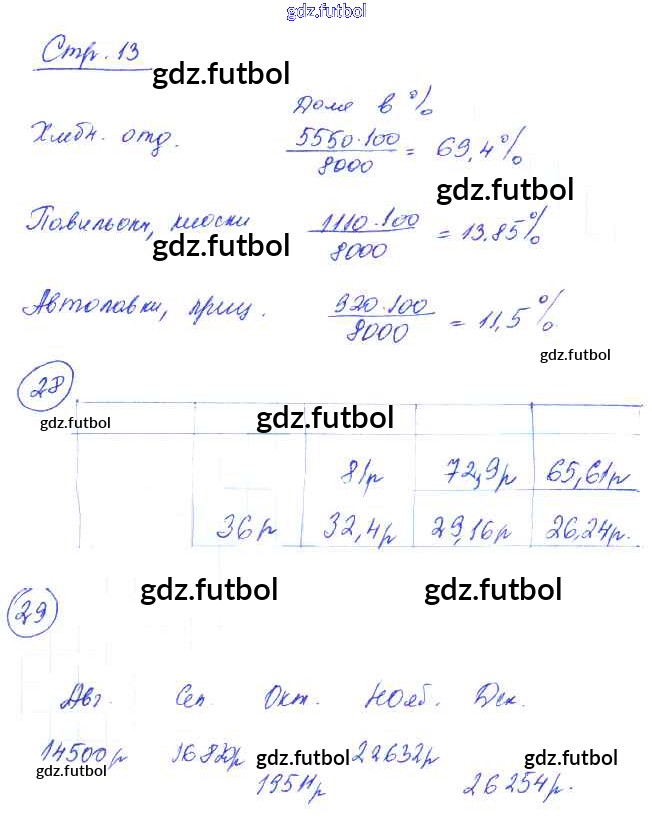 gdz.futbol
Стр. 13
gdz.futbol
Доля в %
Хлебн. отд. 5550·100 / 8000 = 69,4%
gdz.futbol
Павильоны, киоски 1110·100 / 8000 = 13,85%
gdz.futbol
Автолавки, приц. 920·100 / 8000 = 11,5%
gdz.futbol
28
gdz.futbol gdz.futbol
81р 72,9р 65,61р
36р 32,4р 29,16р 26,24р.
gdz.futbol gdz.futbol
29
Авг. Сен. Окт. Нояб. Дек.
14500р 16820р 22632р
gdz.futbol gdz.futbol gdz.futbol
19511р 26254р.